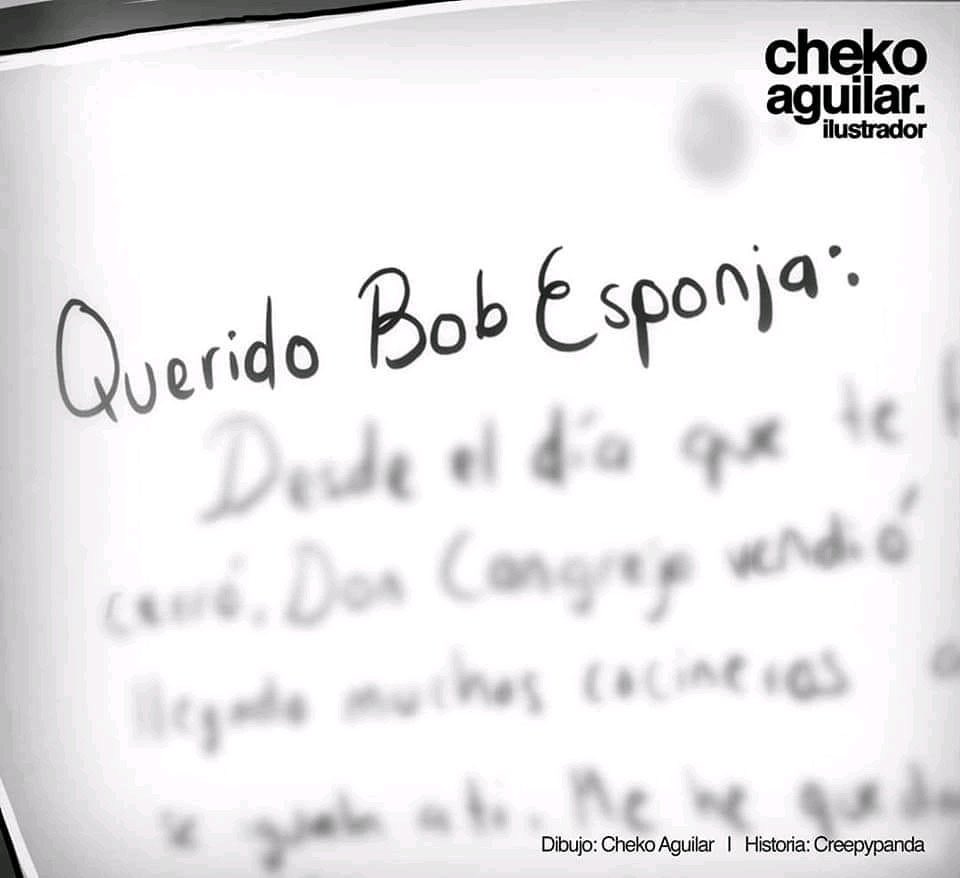 cheko
aguilar.
ilustrador
Querido Bob Esponja:
Desde el día que te
cerró. Don Cangrejo vendió
llegado muchos cocineros
a ti. Me he
Dibujo: Cheko Aguilar | Historia: Creepypanda